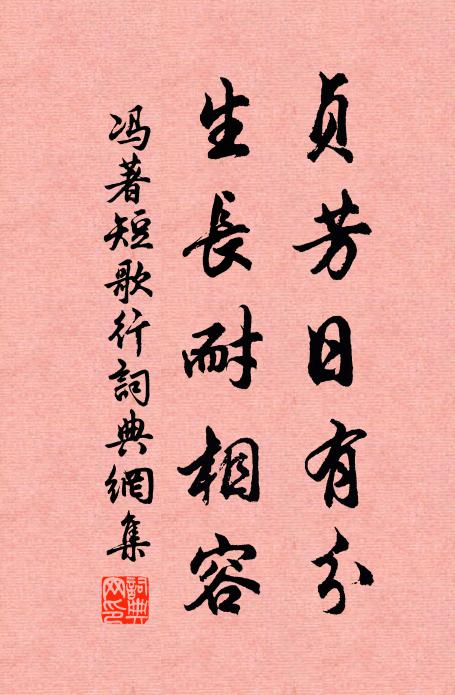 貞芳日有分
生長耐相容
冯著短歌行詞典網集
詞典網印